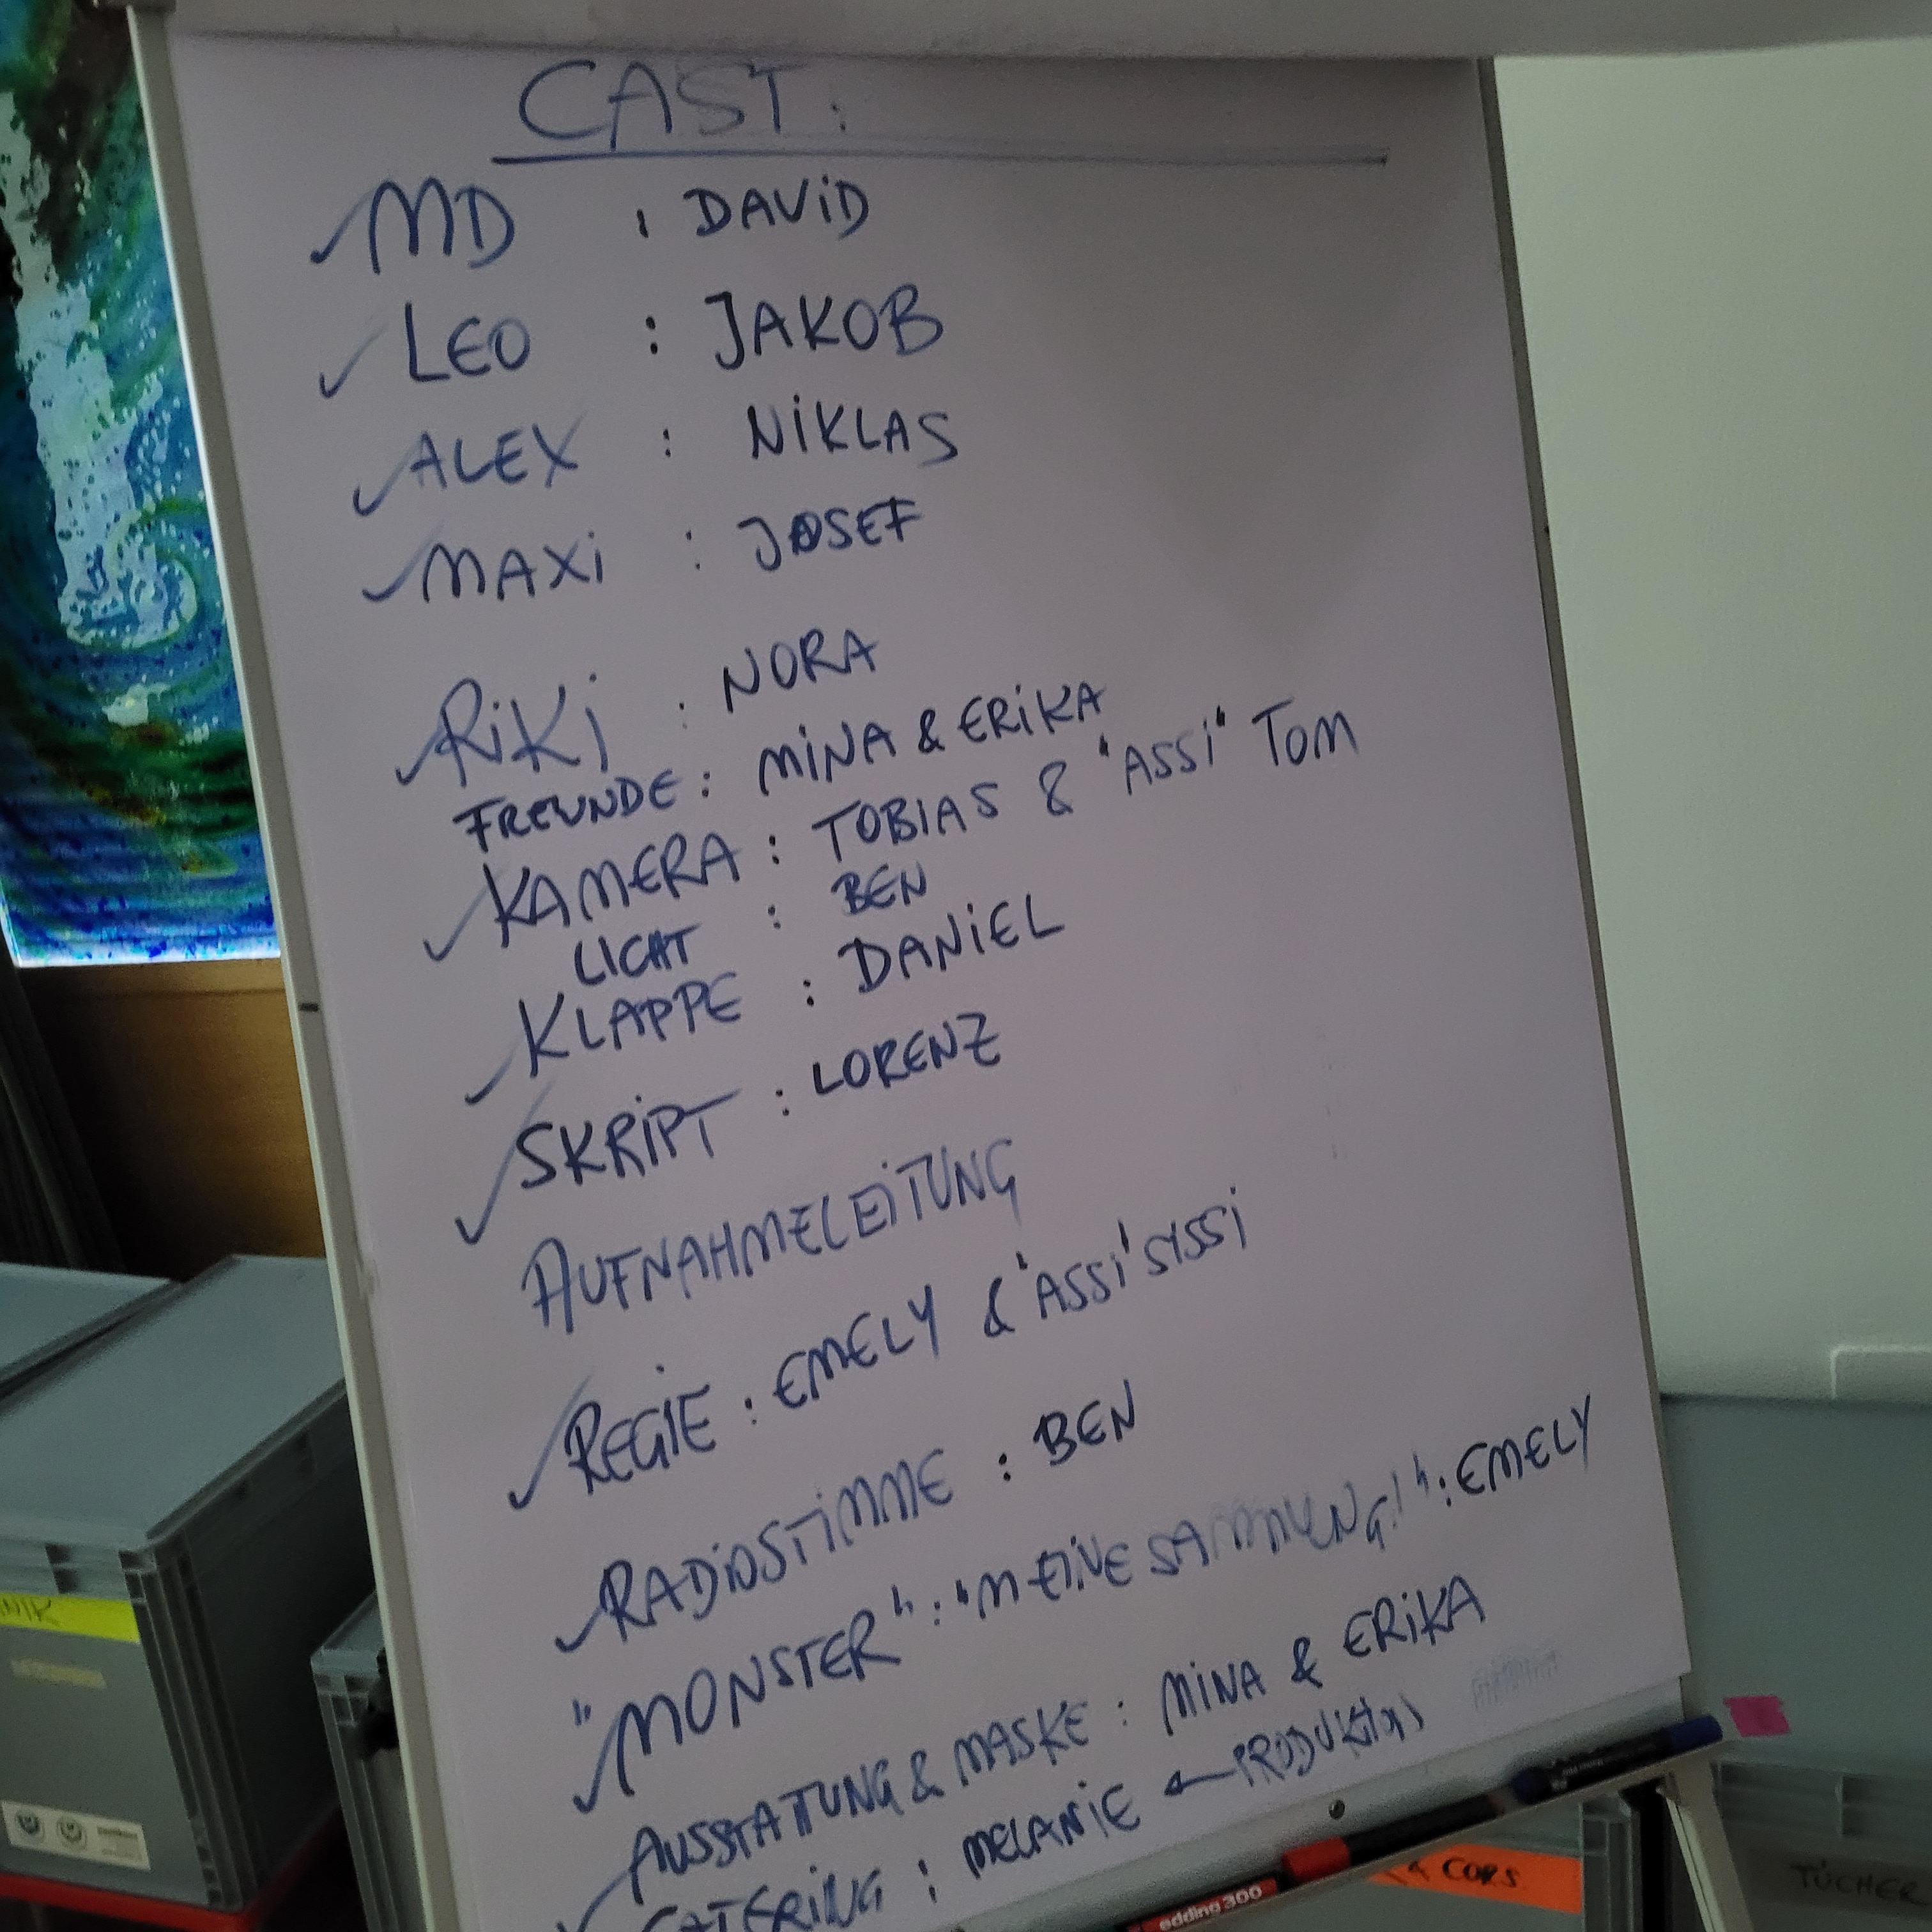 CAST:
MD : DAViD
LEO : JAKOB
ALEX : NiKLAS
MAXi : JOSEF
RiKi : NORA
FREUNDE: MiNA & ERiKA
KAMERA: TOBIAS & "ASSI" TOM
LICHT : BEN
KLAPPE : DANiEL
SKRiPT : LORENZ
AUFNAHMELEiTUNG
REGIE : EMELY & 'ASSi' SISSi
RADiOSTiMME : BEN
"MONSTER": "MEINE SAMMLUNG!": EMELY
AUSSTATTUNG & MASKE: MiNA & ERiKA
CATERiNG : MELANiE ← PRODUKTION
edding 300
& CORS
TÜCHER